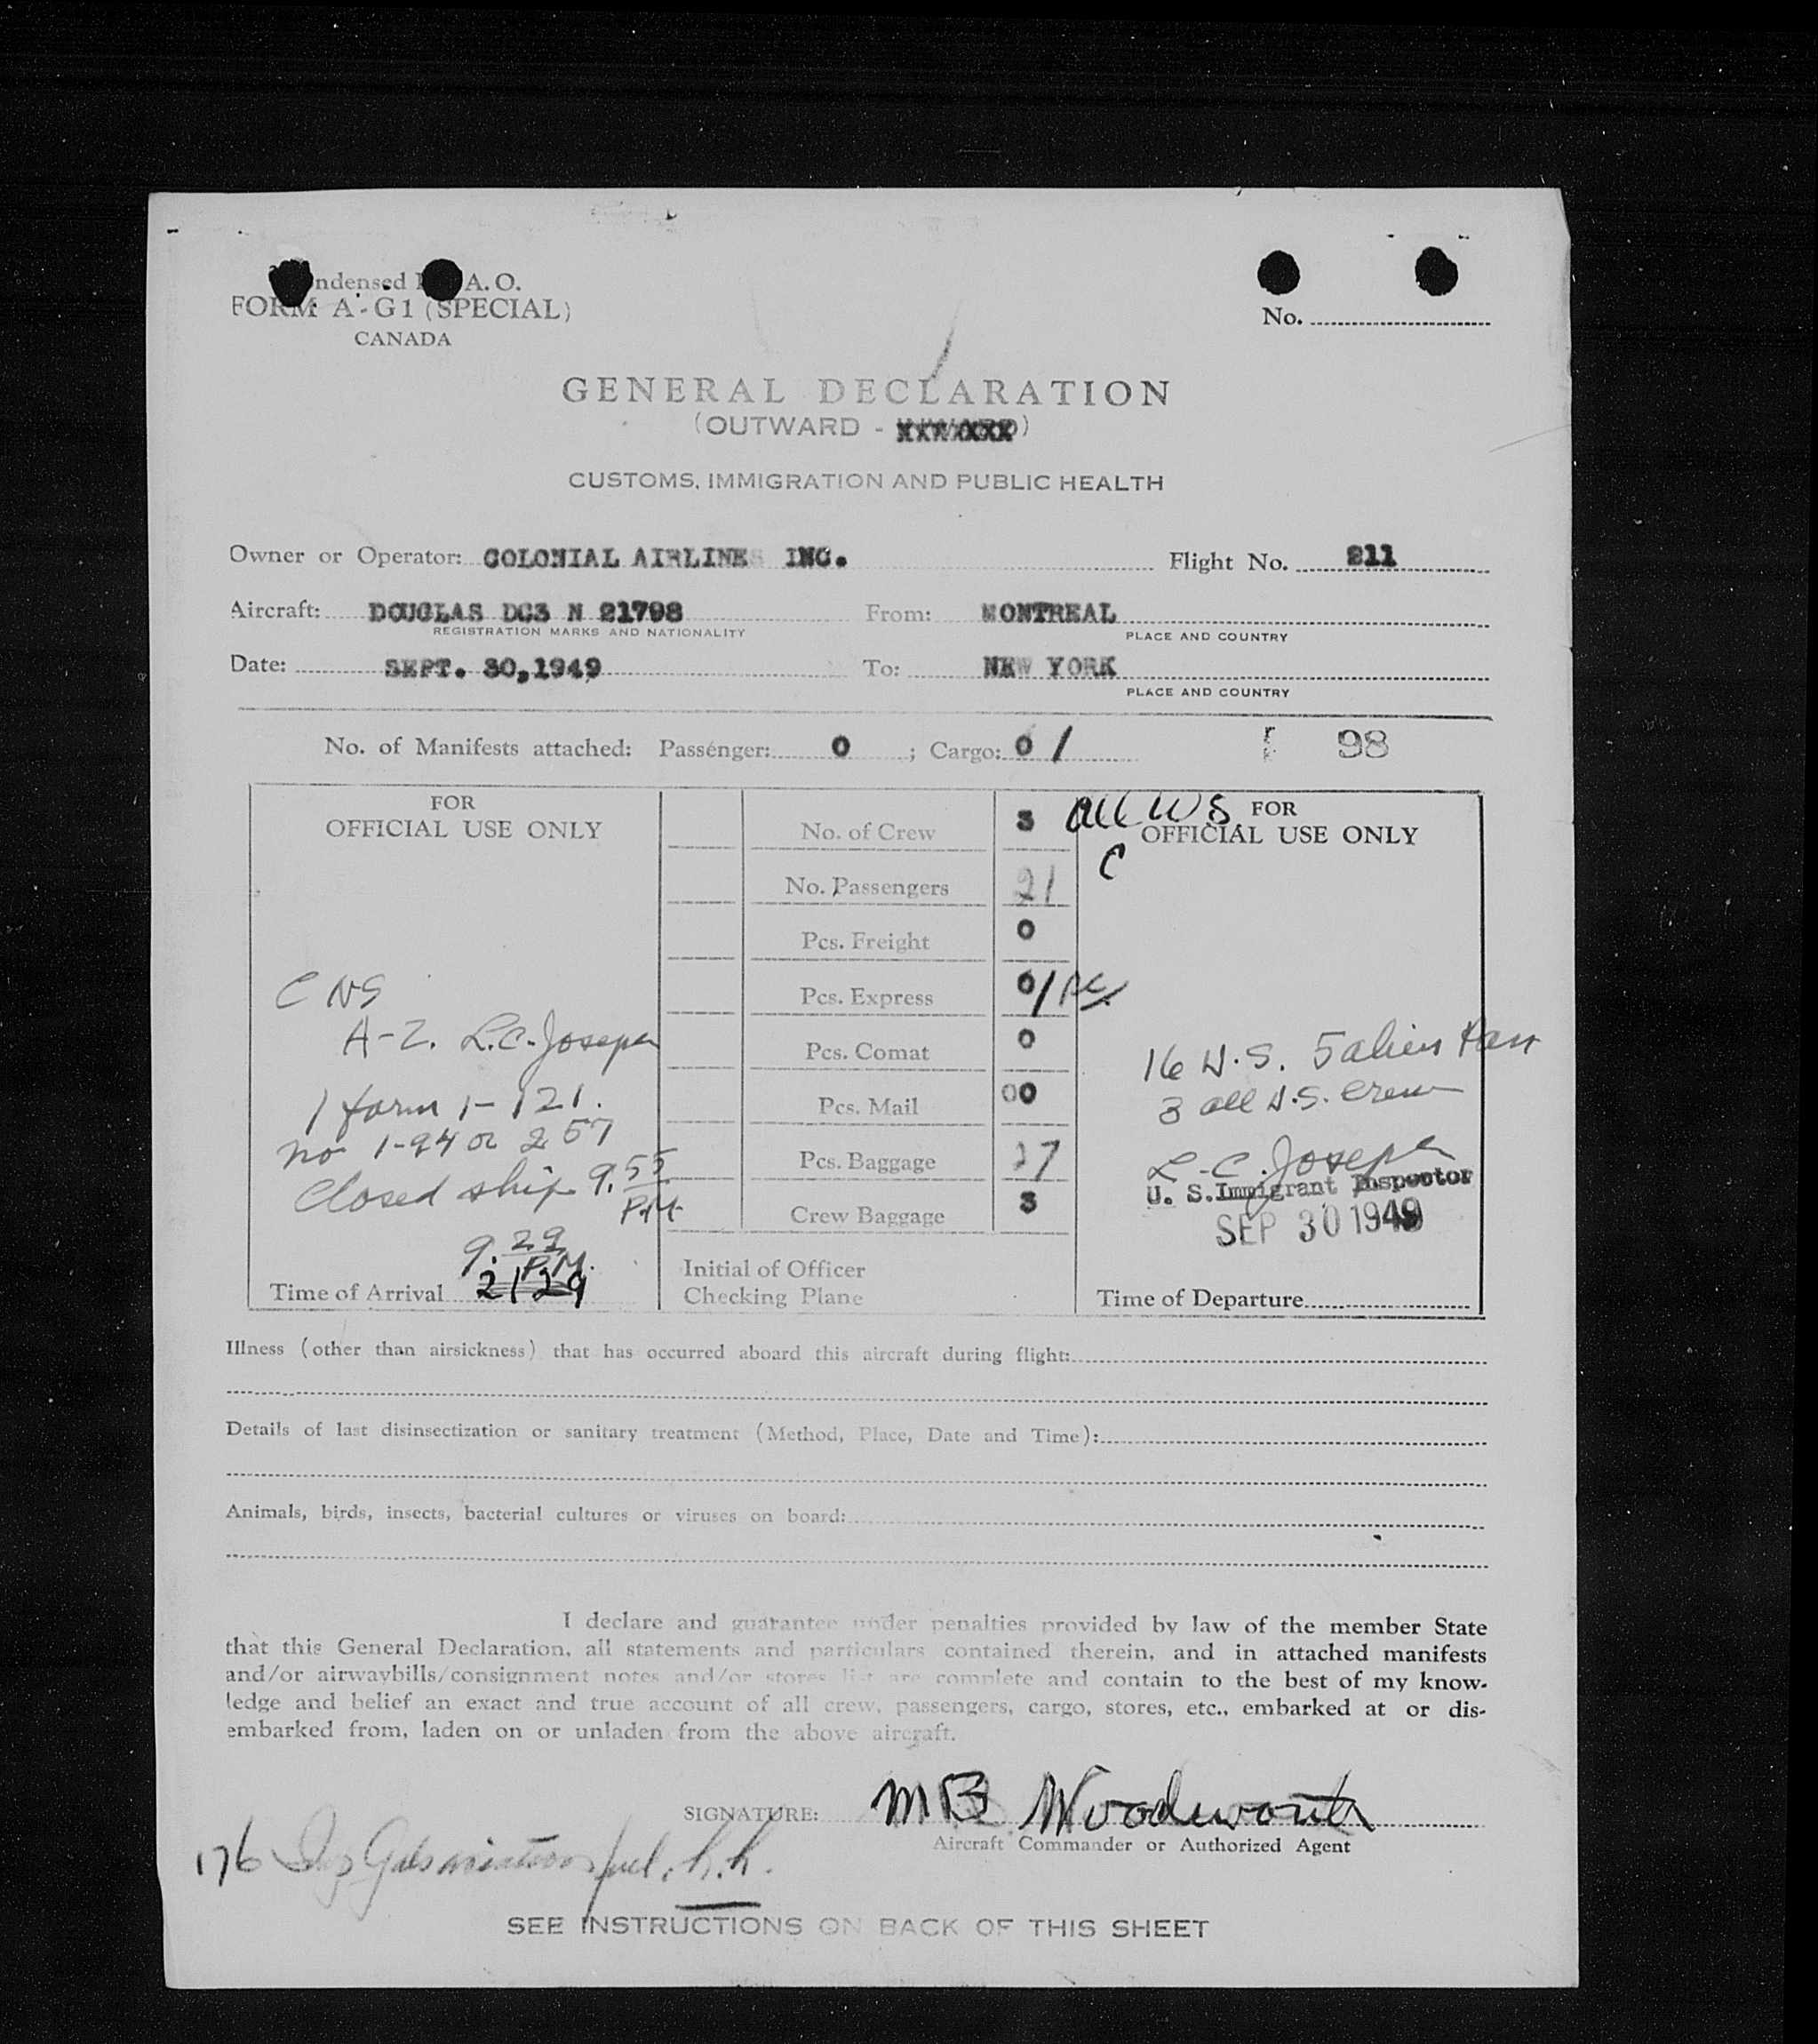 ndensed A. O.
FORM A-G1 (SPECIAL)
CANADA
No.
GENERAL DECLARATION
(OUTWARD - XXXXXXX)
CUSTOMS, IMMIGRATION AND PUBLIC HEALTH
Owner or Operator: COLONIAL AIRLINES INC. Flight No. 211
Aircraft: DOUGLAS DC3 N 21798 From: MONTREAL
REGISTRATION MARKS AND NATIONALITY PLACE AND COUNTRY
Date: SEPT. 30,1949 To: NEW YORK
PLACE AND COUNTRY
No. of Manifests attached: Passenger: 0 ; Cargo: 0 1 98
FOR
OFFICIAL USE ONLY
C NS
A-2. L.C. Joseph
1 form 1-121.
no 1-94 or 257
Closed ship 9.55
P.M.
9.29
P.M.
Time of Arrival 2129
No. of Crew 3
No. Passengers 21
Pcs. Freight 0
Pcs. Express 0 1 pc.
Pcs. Comat 0
Pcs. Mail 00
Pcs. Baggage 27
Crew Baggage 3
Initial of Officer
Checking Plane
All US FOR
OFFICIAL USE ONLY
C
16 U.S. 5 alien Pass
3 all U.S. Crew
L.C. Joseph
U. S. Immigrant Inspector
SEP 30 1949
Time of Departure
Illness (other than airsickness) that has occurred aboard this aircraft during flight:
Details of last disinsectization or sanitary treatment (Method, Place, Date and Time):
Animals, birds, insects, bacterial cultures or viruses on board:
I declare and guarantee under penalties provided by law of the member State
that this General Declaration, all statements and particulars contained therein, and in attached manifests
and/or airwaybills/consignment notes and/or stores list are complete and contain to the best of my know-
ledge and belief an exact and true account of all crew, passengers, cargo, stores, etc., embarked at or dis-
embarked from, laden on or unladen from the above aircraft.
SIGNATURE: MB Woodworth
Aircraft Commander or Authorized Agent
176 fuel. h.h.
SEE INSTRUCTIONS ON BACK OF THIS SHEET